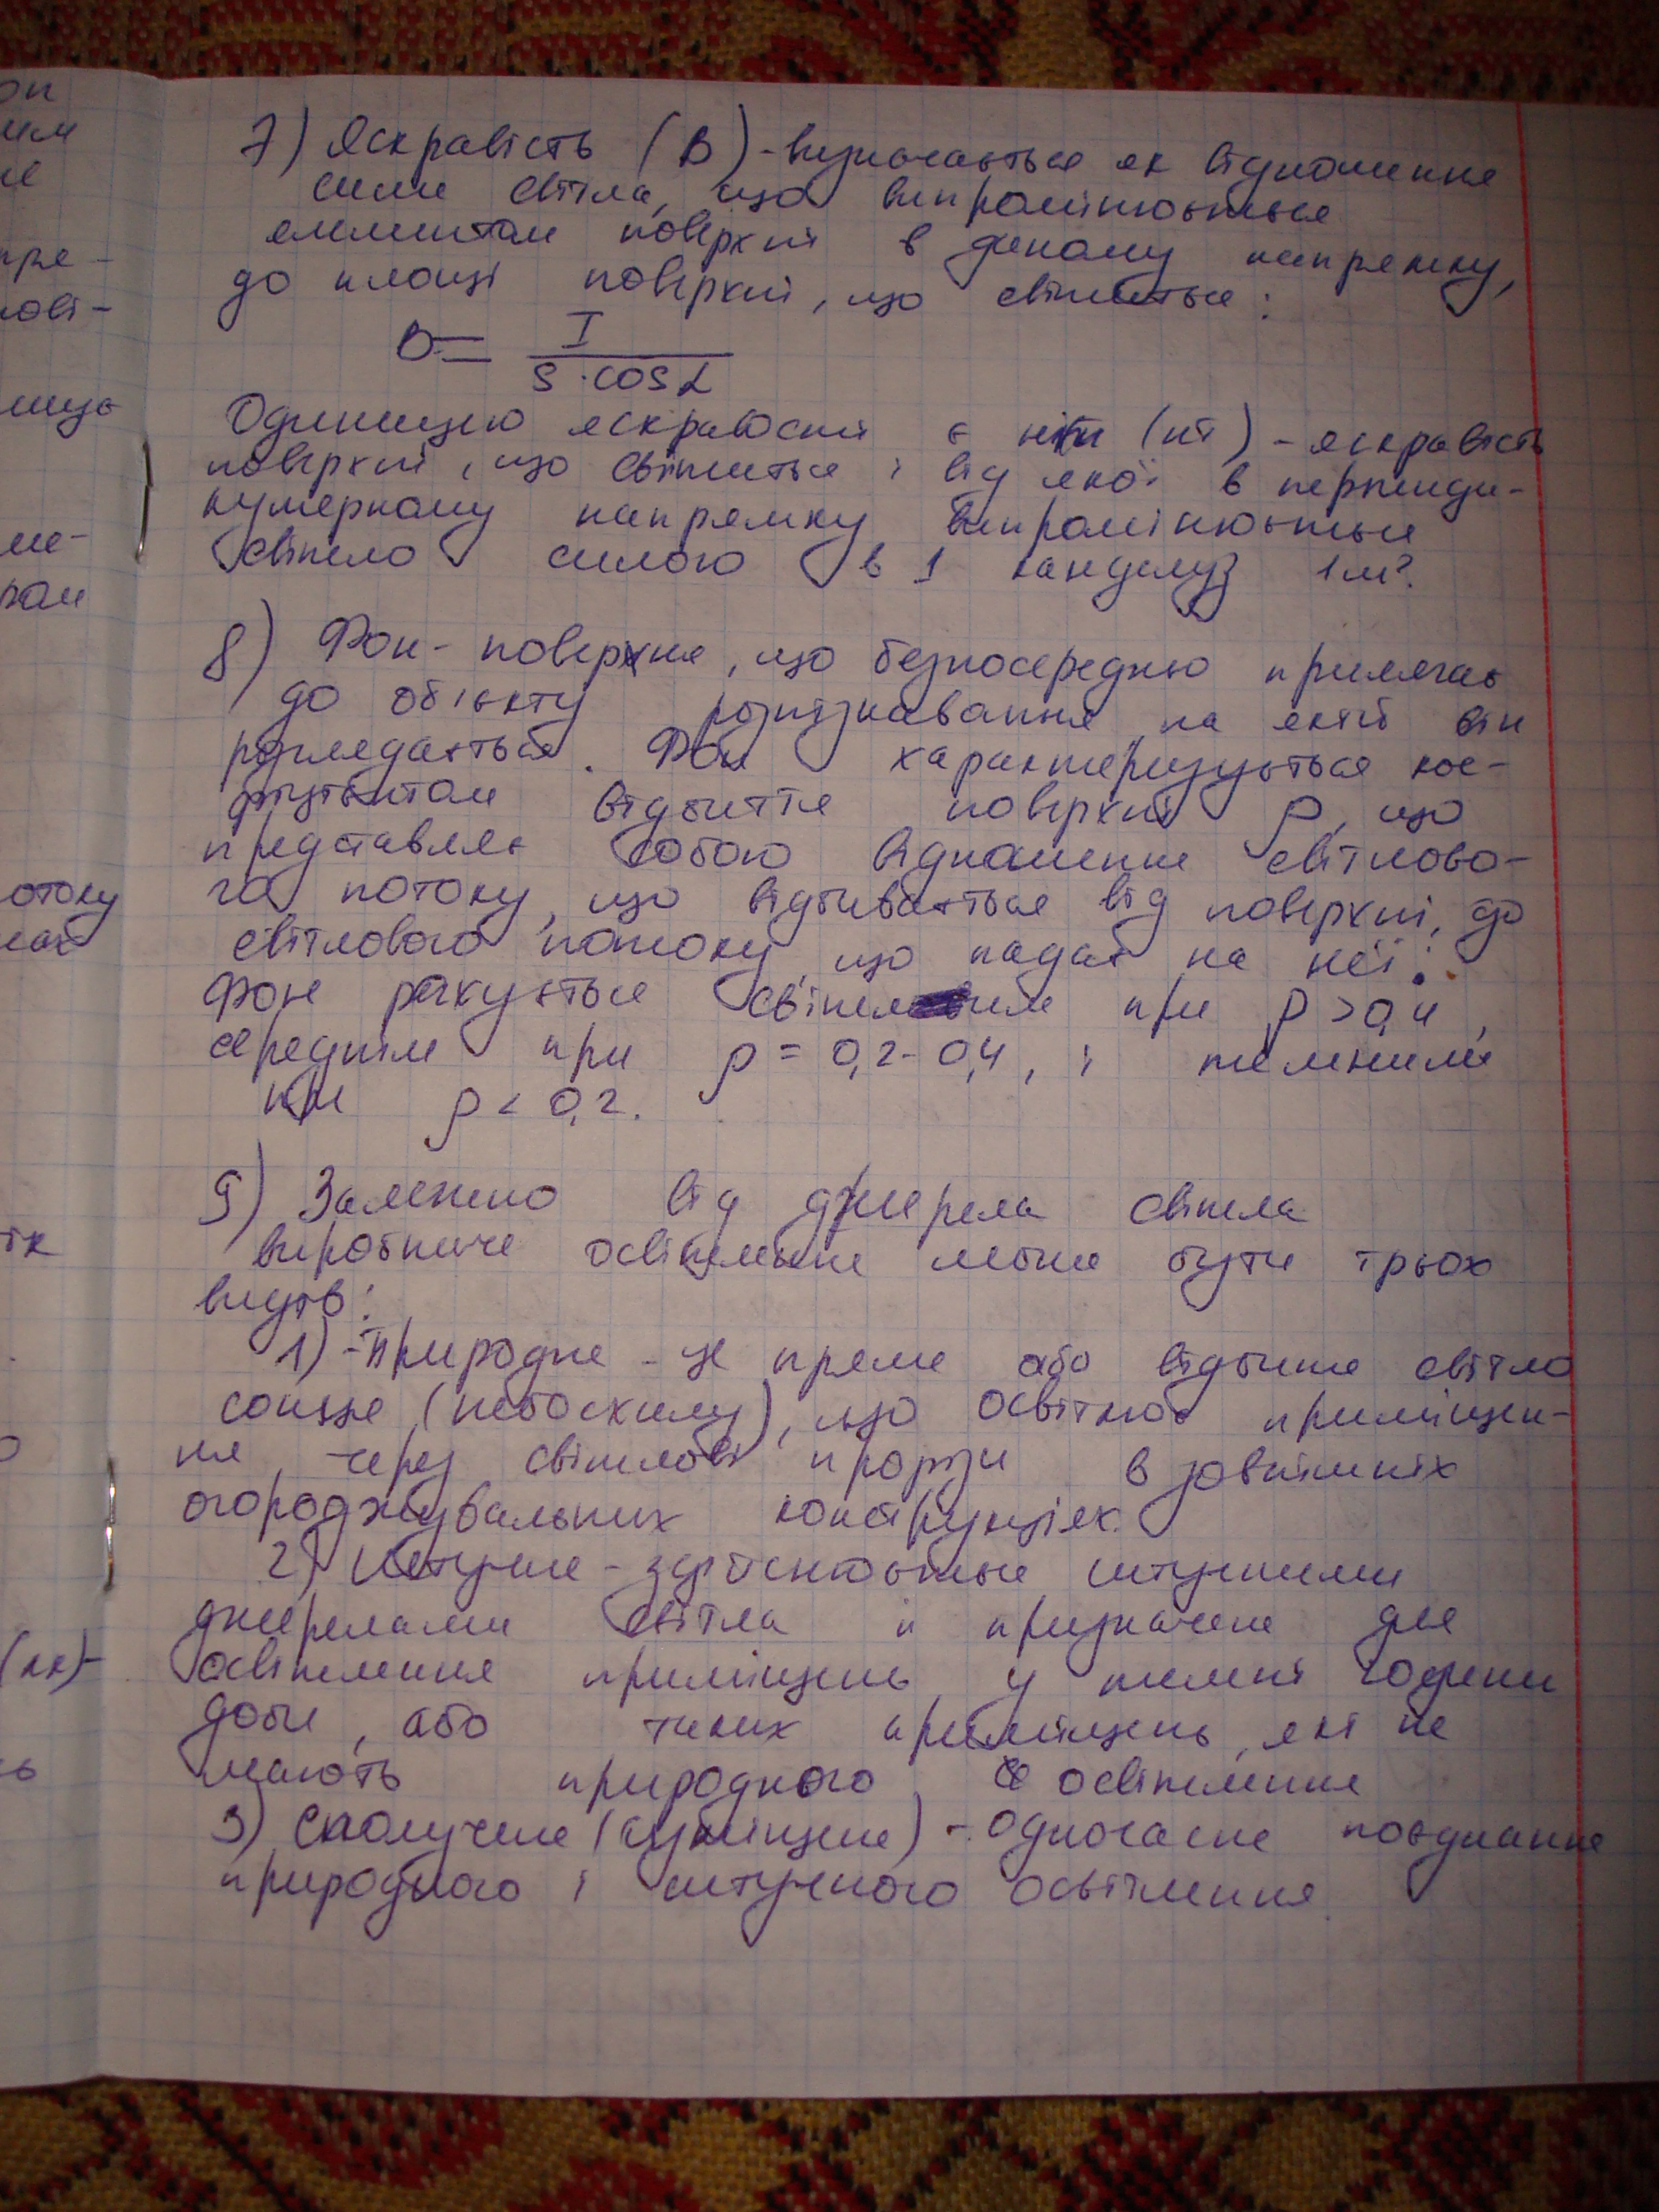 7) Яскравість (В) - визначається як відношення
сили світла, що випромінюється
елементом поверхні в даному напрямку,
до площі поверхні, що світиться:
B = I / S · cos α
Одиницею яскравості є ніт (нт) - яскравість
поверхні, що світиться і від якої в перпенди-
кулярному напрямку випромінюється
світло силою в 1 канделу з 1 м².
8) Фон - поверхня, що безпосередньо прилягає
до об'єкту розпізнавання на якій він
розглядається. Фон характеризується кое-
фіцієнтом відбиття поверхні ρ, що
представляє собою відношення світлово-
го потоку, що відбивається від поверхні, до
світлового потоку, що падає на неї.
Фон рахується світлим при ρ > 0,4,
середнім при ρ = 0,2 - 0,4, і темним
при ρ < 0,2.
9) Залежно від джерела світла
виробниче освітлення може бути трьох
видів:
1) - природне - це пряме або відбите світло
сонця (небосхилу), що освітлює приміщен-
ня, через світлові прорізи в зовнішніх
огороджувальних конструкціях.
2) Штучне - здійснюється штучними
джерелами світла і призначене для
освітлення приміщень у темні години
доби, або таких приміщень, які не
мають природного освітлення
3) Сполучене (суміщене) - одночасне поєднання
природного і штучного освітлення.
отоку
(лк)-